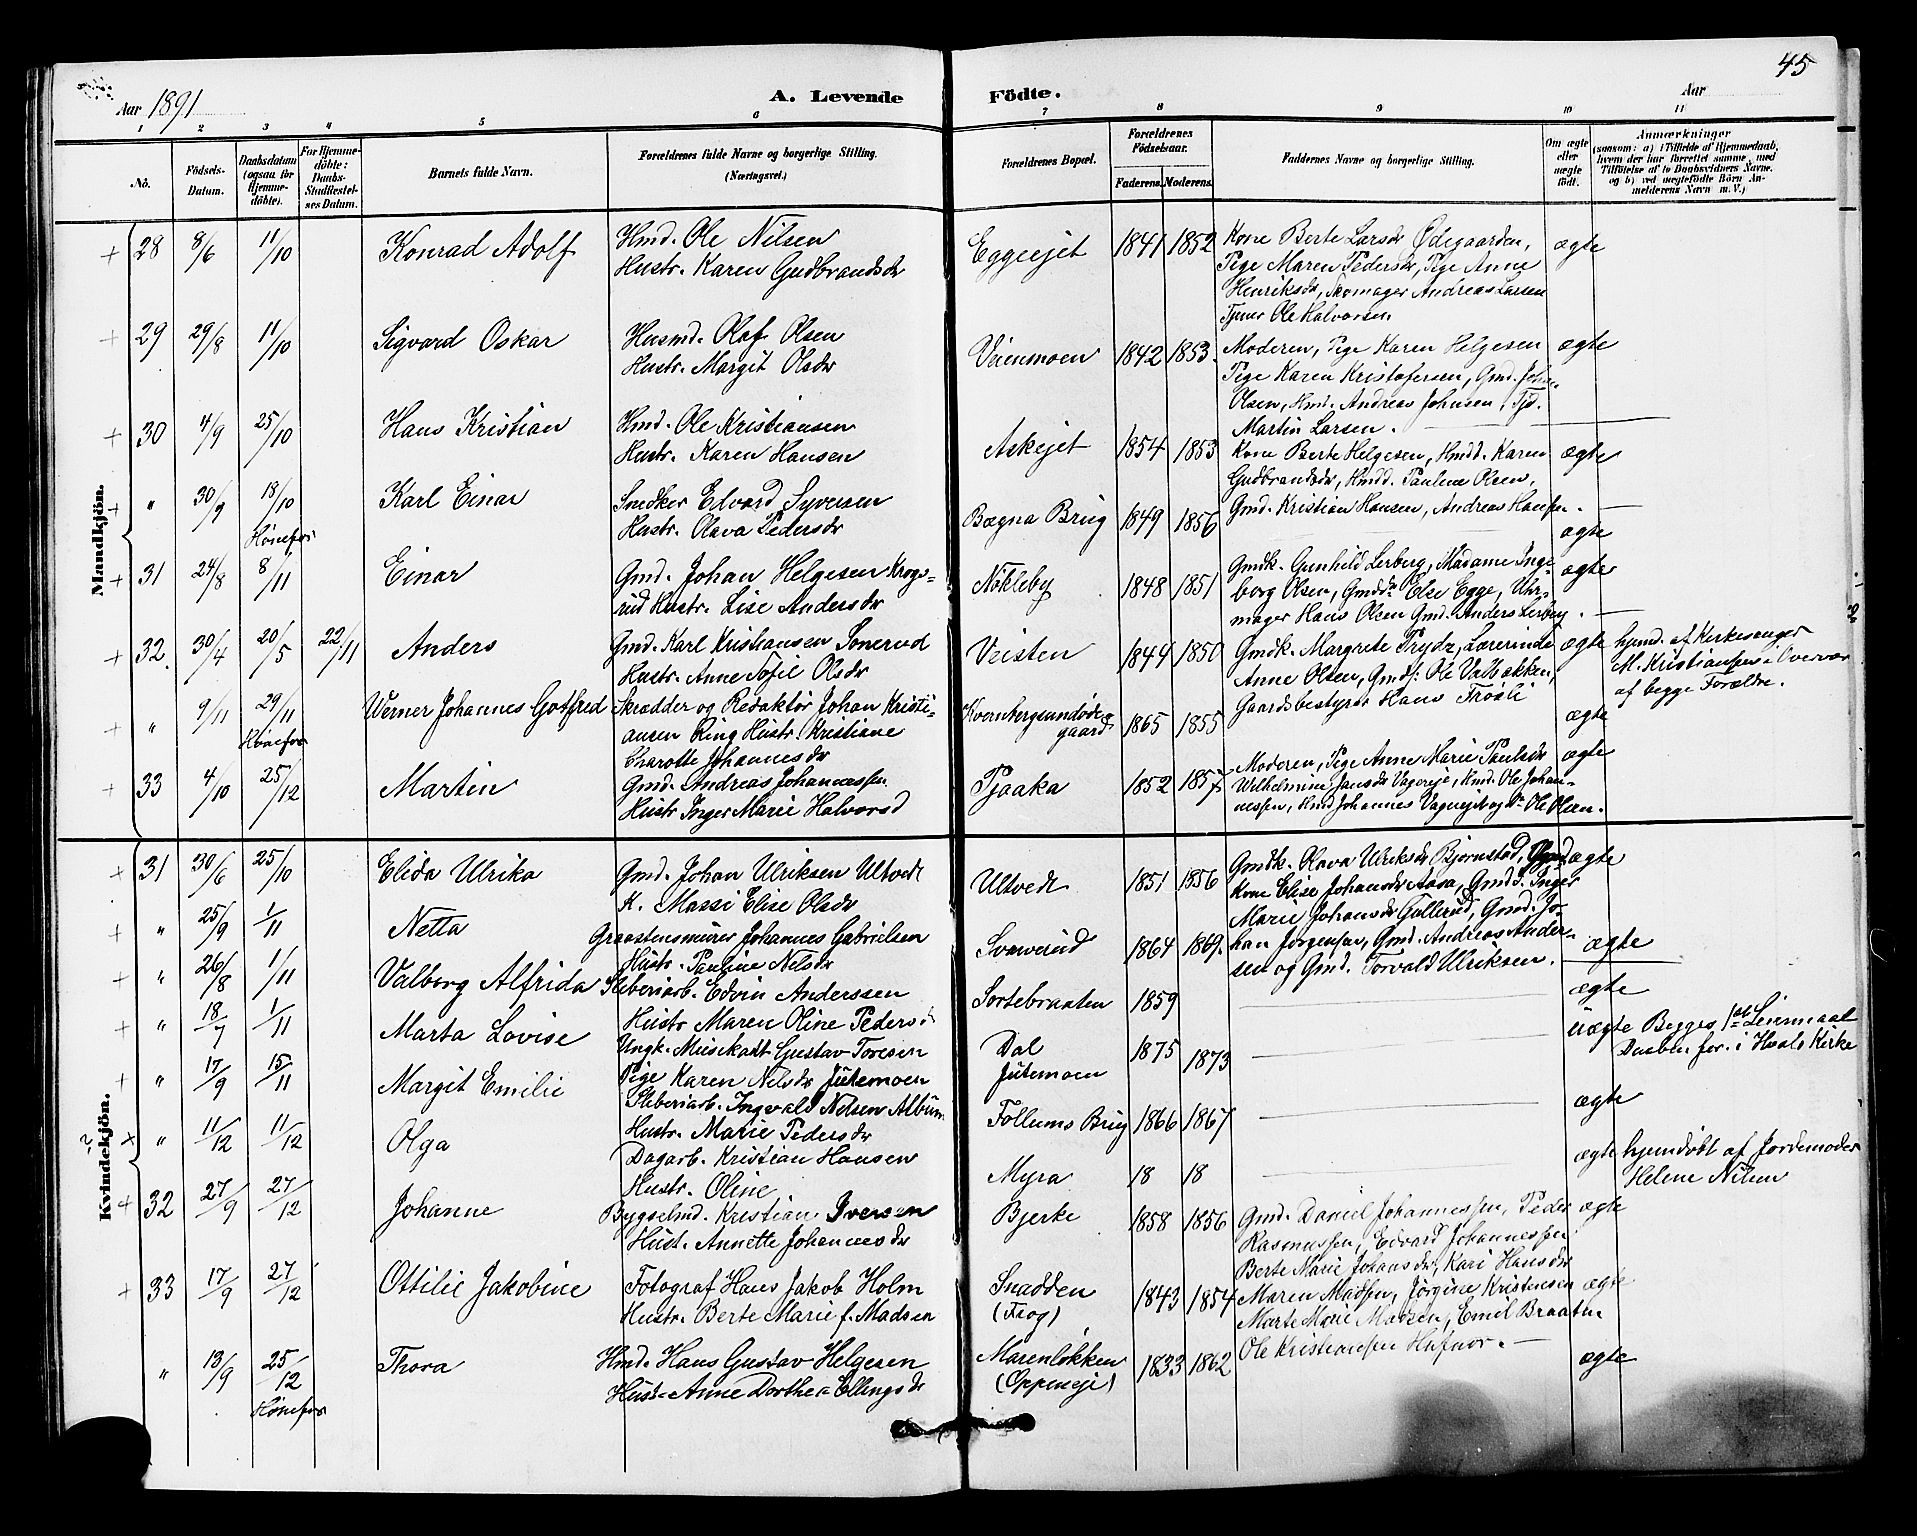 45
Aar 1891
A. Levende Födte.
Aar
1 2 3 4 5 6 7 8 9 10 11
No.
Födsels-Datum.
Daabsdatum (ogsaa for Hjemme-döbte).
For Hjemme-döbte: Daabs-Stadfæstel-ses Datum.
Barnets fulde Navn.
Forældrenes fulde Navne og borgerlige Stilling. (Næringsvei.)
Forældrenes Bopæl.
Forældrenes Födselsaar.
Faderens. Moderens.
Faddernes Navne og borgerlige Stilling.
Om ægte eller uægte födt.
Anmærkninger
(saasom: a) i Tilfælde af Hjemmedaab, hvem der har forrettet samme, med Tilföielse af to Daabsvidners Navne, og b) ved uægtefödte Börn An-melderens Navn m. V.)
Mandkjön.
28 8/6 11/10 Konrad Adolf Hmd. Ole Nilsen
Hustr. Karen Gudbrandsdr
Eggeejet 1841 1852 Kone Berte Larsdr Ødegaarden,
Pige Maren Pedersdr, Pige Anne
Henriksdr, Skomager Andreas Larsen
Tjener Ole Halvorsen
ægte
29 29/8 11/10 Sigvard Oskar Husmd. Olaf Olsen
Hustr. Margit Olsdr
Veienmoen 1842 1853. Moderen, Pige Karen Helgesen
Pige Karen Kristofersen, Gmd. Johan
Olsen, Hmd. Andreas Johnsen, Tjd.
Martin Larsen.
ægte
30 4/9 25/10 Hans Kristian Hmd. Ole Kristiansen
Hustr. Karen Hansen
Askejet 1854 1853 Kone Berte Helgesen, Hmdd. Karen
Gudbrandsdr, Hmdd. Pauline Olsen,
Gmd. Kristian Hansen, Andreas Hansen.
ægte
" 30/9 18/10 Hönefos Karl Einar Snedker Edvard Syversen
Hustr. Olava Pedersdr
Bægna Brug 1849 1856
ægte
31 24/8 8/11 Einar Gmd. Johan Helgesen Krogs-
rud Hustr. Lise Andersdr
Nökleby 1848 1851 Gmdk. Gunhild Lerberg, Madame Inge-
borg Olsen, Gmddr Else Egge, Uhr-
mager Hans Olsen Gmd. Anders Lerberg.
ægte
32. 30/4 20/5 22/11 Anders Gmd. Karl Kristiansen Sonerud
Hustr. Anne Sofie Olsdr
Veisten 1844 1850 Gmdk. Margrete Trydz, Lærerinde
Anne Olsen, Gmds. Ole Valbakken,
Gaardsbestyrer Hans Frösli
ægte hjemd. af Kirkesanger
M. Kristiansen i Overvær
af begge Forældre.
" 9/11 29/11 Hönefos Werner Johannes Gotfred Skrædder og Redaktör Johan Kristi-
ansen Ring Hustr. Kristiane
Charotte Johannesdr
Kvernbergsundöde-
gaard 1865 1855
ægte
33 4/10 25/12 Martin Gmd. Andreas Johannessen
Hustr Inger Marie Halvorsd
Tjaaka 1852 1857 Moderen, Pige Anne Marie Paulsdr
Wilhelmine Jansdr Vagereje, Hmd. Ole Johan-
nessen, Hmd Johannes Vagnejet og Do Ole Olsen.
ægte
Kvindekjön.
31 30/6 25/10 Elida Ulrika Gmd. Johan Ulriksen Ultvedt
K. Massi Elise Olsdr
Ultvedt 1851 1856 Gmdk. Olava Ulriksdr Bjørnstad,
Kone Elise Johansdr Aasa, Gmdd. Inger
Marie Johansdr Gullerud, Gmd. Jo-
han Jörgensen, Gmd. Andreas Ander-
sen og Gmd. Torvald Ulriksen.
ægte
" 25/9 1/11 Netta Graastensmurer Johannes Gabrielsen
Hustr. Pauline Nelsdr
Svarverud 1864 1869.
ægte
" 26/8 1/11 Valborg Alfrida Sliberiarb. Edvin Anderssen
Hustr Maren Oline Pedersd
Sortebraaten 1859
ægte
" 18/7 1/11 Marta Lovise Ungk. Musikadt Gustav Toresen
Pige Karen Nelsdr Jütemoen
Dal
Jütemoen 1875 1873
uægte Begges 1ste Leiermaal
Daaben for. i Hvals Kirke
" 17/9 15/11 Margit Emilie Sliberiarb. Ingvald Nelsen Album
Hustr. Marie Pedersdr
Follums Brug 1866 1867
ægte
" 11/12 11/12 Olga Dagarb. Kristian Hansen
Hustr. Oline
Myra 18 18
ægte hjemdöbt af Jordemoder
Helene Nilsen
32 27/9 27/12 Johanne Bygselmd. Kristian Iversen
Hust. Annette Johannesdr
Bjerke 1858 1856 Gmd. Daniel Johannessen, Peder
Rasmussen, Edvard Johannessen
Berte Marie Johansdr, Kari Hansdr
ægte
33 17/9 27/12 Ottilie Jakobine Fotograf Hans Jakob Holm
Hustr. Berte Marie f. Madsen
Snadden
(Frog) 1843 1854 Maren Madsen, Jörgine Kristensen
Marte Marie Madsen, Emil Braaten
Ole Kristiansen Hafnor.
ægte
" 13/9 25/12 Hönefos Thora Hmd. Hans Gustav Helgesen
Hust. Anne Dorthea Ellingsdr
Marenløkken
(Oppeneje) 1833 1862
ægte